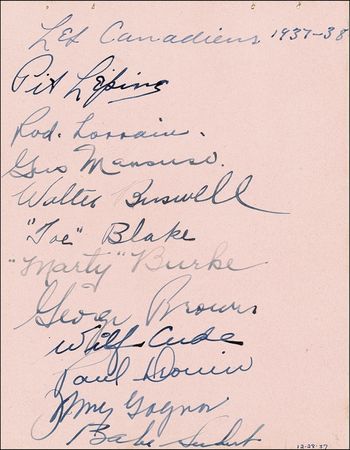 Les Canadiens 1937-38
Pit Lépine
Rod. Lorrain.
Gus Mancuso.
Walter Buswell
"Toe" Blake
"Marty" Burke
George Brown
Wilf. Cude
Paul Drouin
Jonny Gagnon
Babe Siebert
12-28-37